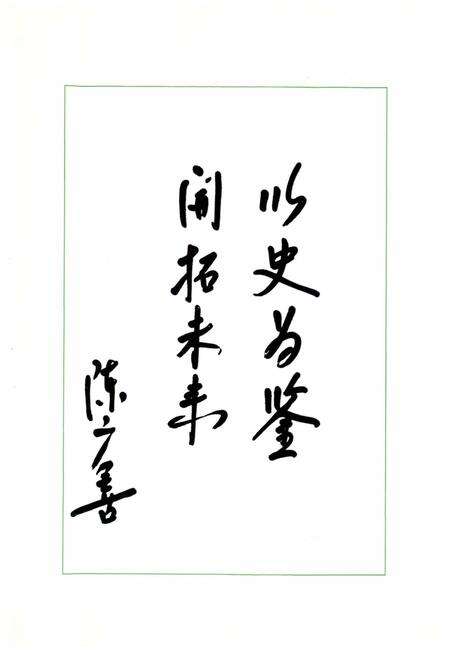 以史为鉴
開拓未来
陈立善